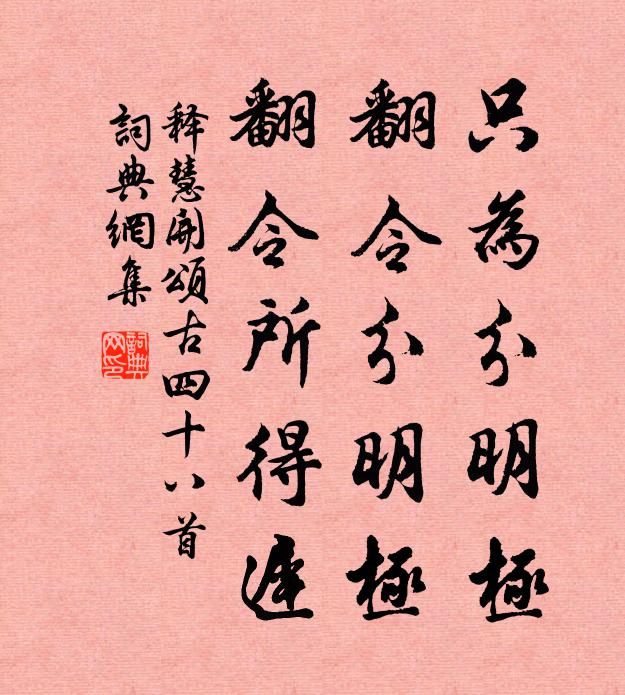 只為分明極
翻令分明極
翻令所得遲
釋慧開頌古四十八首
詞典網集
詞典網印